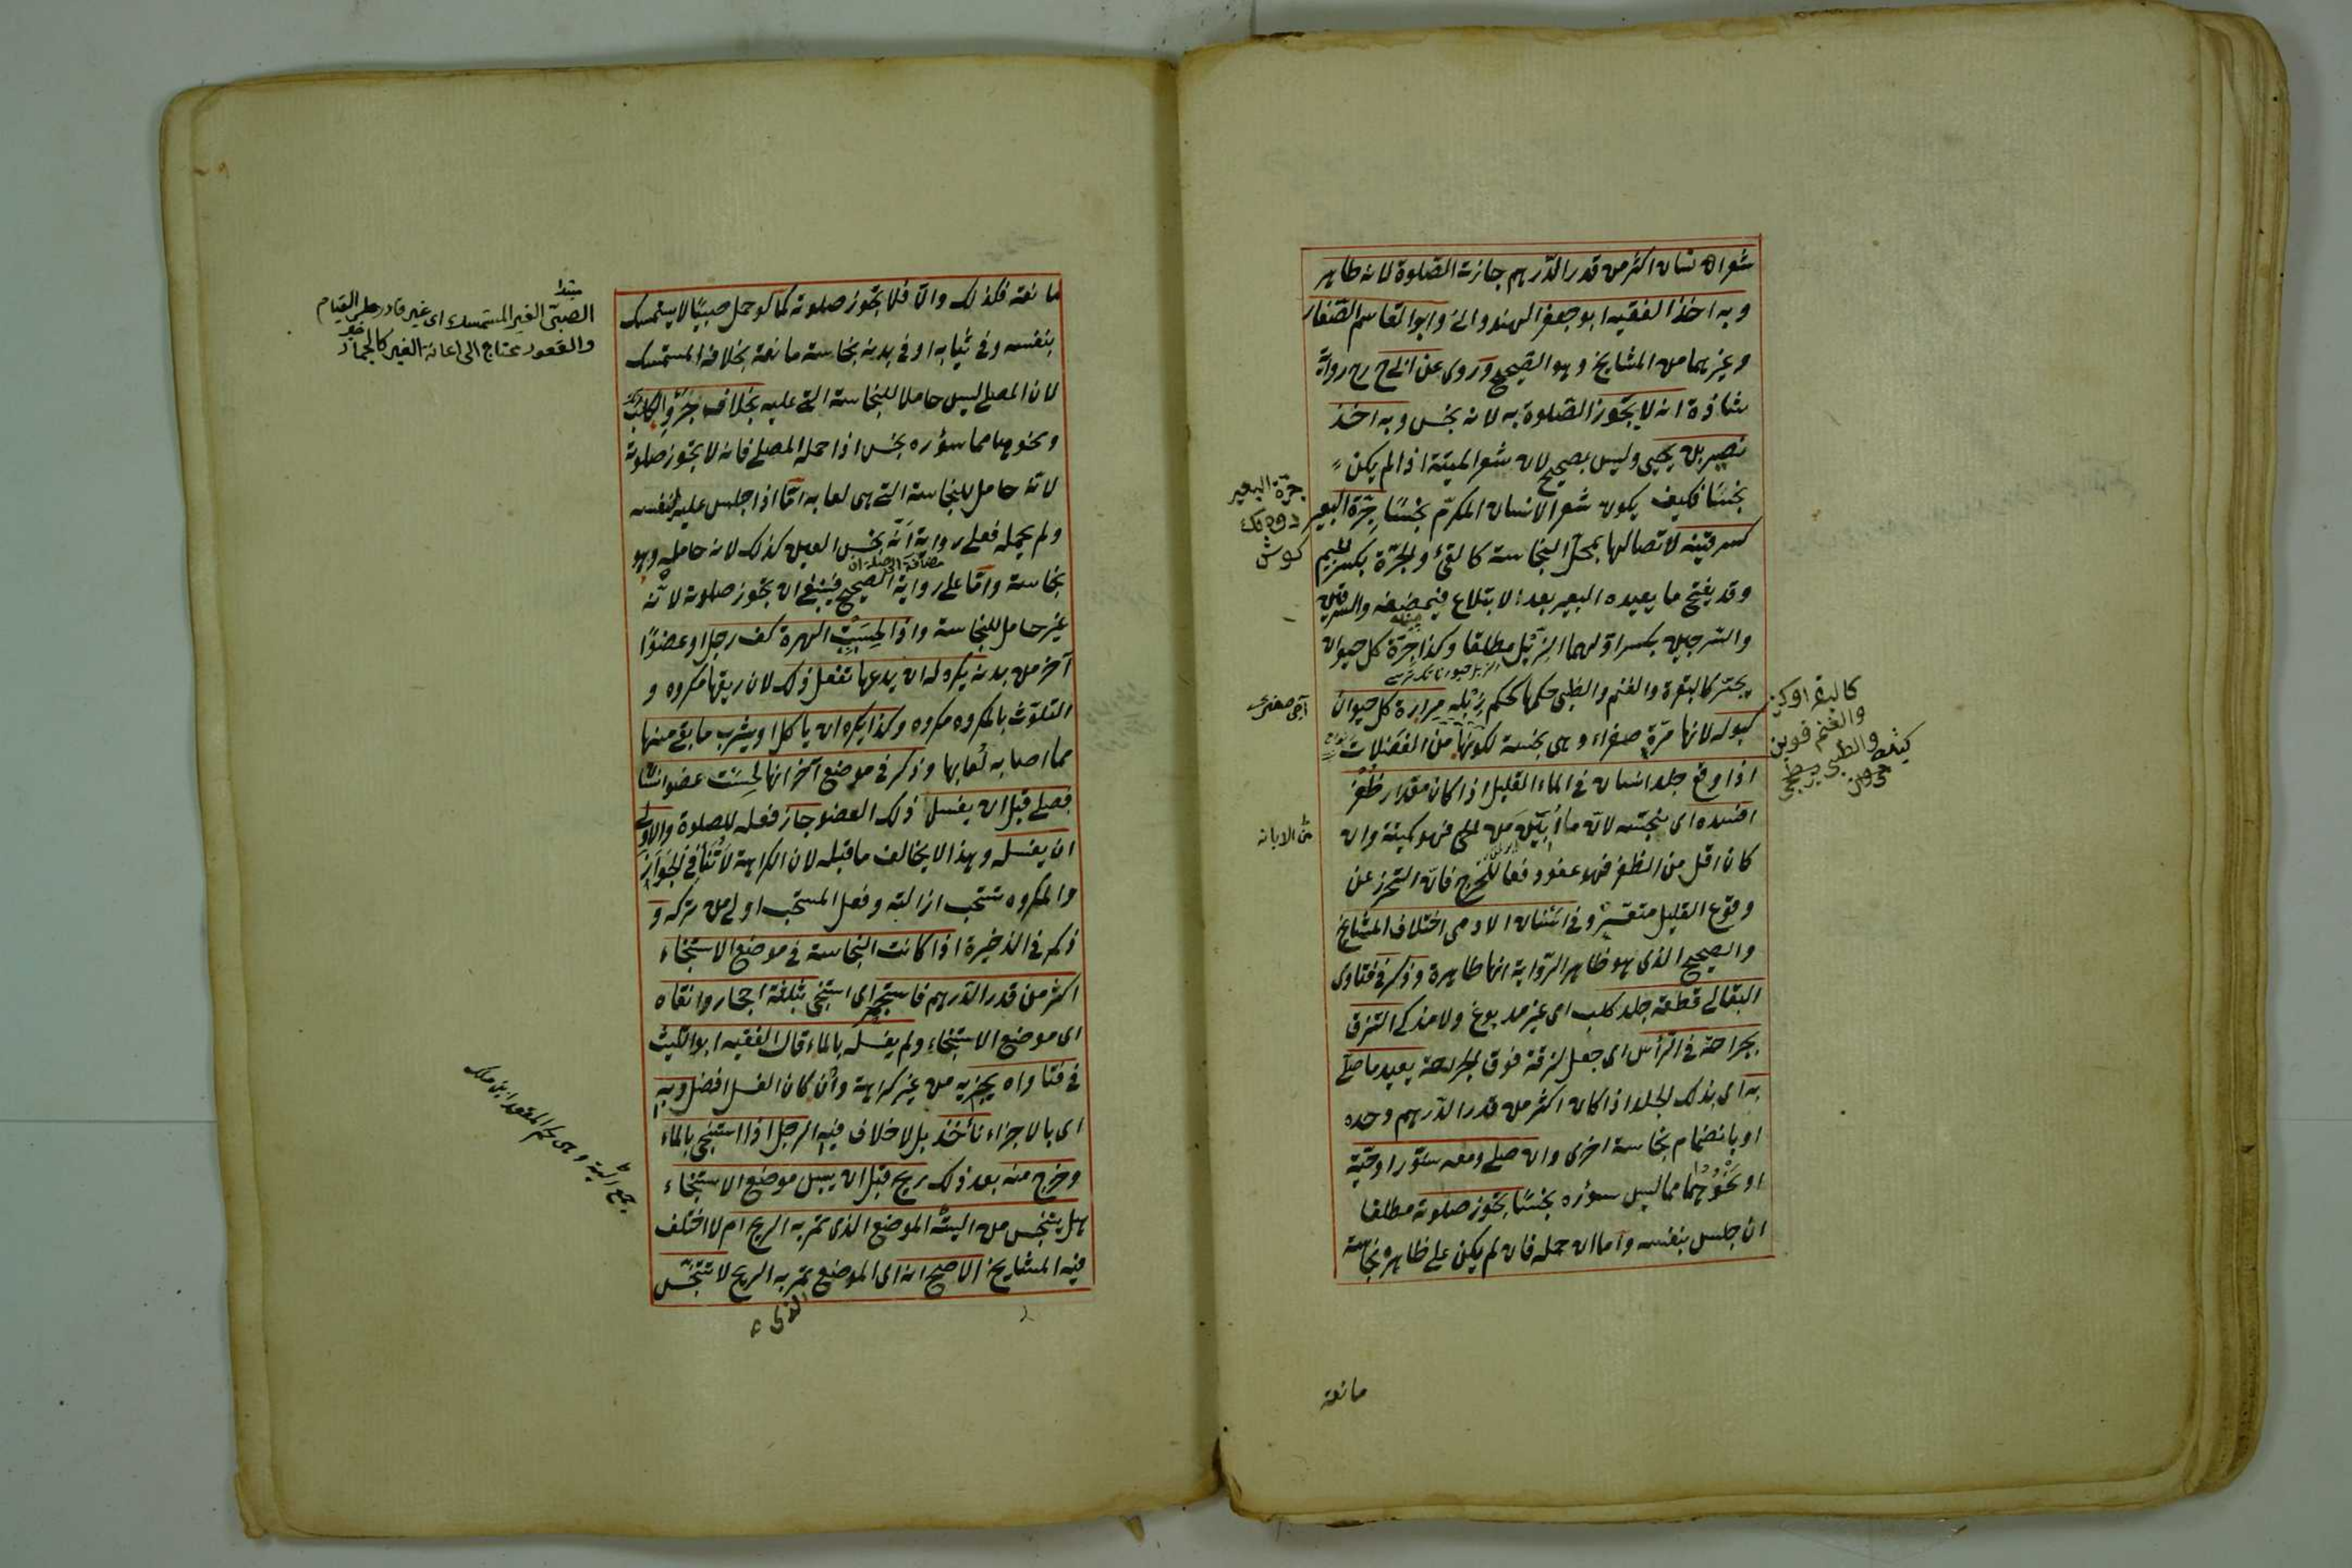 شعر انسان اكثر من قدر الدرهم جازت الصلوة لانه طاهر
وبه اخذ الفقيه ابو جعفر الهندوانى وابو القاسم الصفار
وغيرهما من المشايخ وهو الصحيح وروى عن ابى ح رح رواية
شاذة انه لا يجوز الصلوة به لانه نجس وبه اخذ
نصير بن يحيى وليس بصحيح لان شعر الميتة اذا لم يكن
نجسًا فكيف يكون شعر الانسان المكرم نجسًا جرة البعير
كسرقينه لاتصالها بمحل النجاسة كالقئ والجرة بكسر الجيم
وقد يفتح ما يعيده البعير بعد الابتلاع فيمضغه والسرقين
والسرجين بكسر اولهما الزبل مطلقا وكذا جرة كل حيوان
يجتر كالبقرة والغنم والظبى حكمها كحكم زبله مرارة كل حيوان
كبوله لانها مرة صفراء وهى نجسة لكونها من الفضلات
اذا وقع جلد انسان فى الماء القليل اذا كان مقدار ظفر
افسده اى نجسه لان ما ابين من الحى فهو كميتة وان
كان اقل من الظفر فهو عفو دفعا للحرج فان التحرز عن
وقوع القليل متعسر وفى اسنان الادمى اختلاف المشايخ
والصحيح الذى هو ظاهر الرواية انها طاهرة وذكر فى فتاوى
البقالى قطعة جلد كلب اى غير مدبوغ ولا مذكى التزق
بجراحة فى الرأس اى جعل لزقة فوق الجراحة يعيد ما صلى
به اى بذلك الجلد اذا كان اكثر من قدر الدرهم وحده
او بانضمام نجاسة اخرى وان صلى ومعه سنور او حية
او نحوهما مما ليس سؤره نجسًا يجوز صلوته مطلقا
ان جلس بنفسه واما ان حمله فان لم يكن على ظاهره نجاسة
جرة البعير
كوش
من الابانة
كالبقر
والغنم قوين
والظبى
مانعة
مانعة فكذلك والا فلا يجوز صلوته كما لو حمل صبيًا لا يستمسك
بنفسه وفى ثيابه او فى بدنه نجاسة مانعة بخلاف المستمسك
لان المصلى ليس حاملا للنجاسة التى عليه بخلاف جرو الكلب
ونحوها مما سؤره نجس اذا حمله المصلى فانه لا يجوز صلوته
لانه حامل للنجاسة التى هى لعابه اما اذا جلس عليه بنفسه
ولم يحمله فعلى رواية انه نجس العين كذلك لانه حامله وهو
نجاسة واما على رواية الصحيح فينبغى ان يجوز صلوته لانه
غير حامل للنجاسة واذا لحست الهرة كف رجل او عضوًا
آخر من بدنه يكره له ان يدعها تفعل ذلك لان ريقها مكروه و
التلوث بالمكروه مكروه وكذا يكره ان ياكل او يشرب ما بقى منها
مما اصابه لعابها وذكر فى موضع آخر انها لحست عضو انسان
فصلى قبل ان يغسل ذلك العضو جاز فعله للصلوة والاولى
ان يغسله وهذا لا يخالف ما قبله لان الكراهة لا تنافى الجواز
والمكروه تستحب ازالته وفعل المستحب اولى من تركه و
ذكر فى الذخيرة اذا كانت النجاسة فى موضع الاستنجاء
اكثر من قدر الدرهم فاستجمر اى استنجى بثلثة احجار وانقاه
اى موضع الاستنجاء ولم يغسله بالماء قال الفقيه ابو الليث
فى فتاواه يجزيه من غير كراهة وان كان الغسل افضل وبه
اى بالاجزاء نأخذ بل لا خلاف فيه الرجل اذا استنجى بالماء
وخرج منه بعد ذلك ريح قبل ان يبس موضع الاستنجاء
هل يتنجس من اليته الموضع الذى تمر به الريح ام لا اختلف
فيه المشايخ الاصح انه اى الموضع تمر به الريح لا تتنجس
الذى
مبتدا
الصبى الغير المستمسك اى غير قادر على القيام
والقعود يحتاج الى اعانة الغير كالجماد